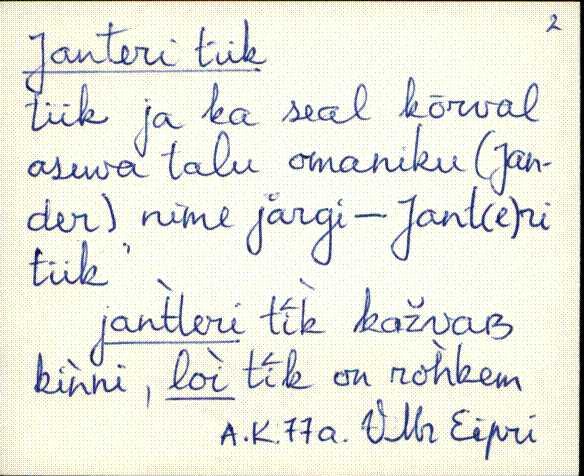 2
Janteri tiik
tiik ja ka seal kõrval
asuva talu omaniku (Jan-
der) nime järgi — Jant(e)ri
tiik
jant̀leri tík̀ kažvaʙ
kiǹni, loì tík on roh̀kem
A.K. 77a. VMr Eipri